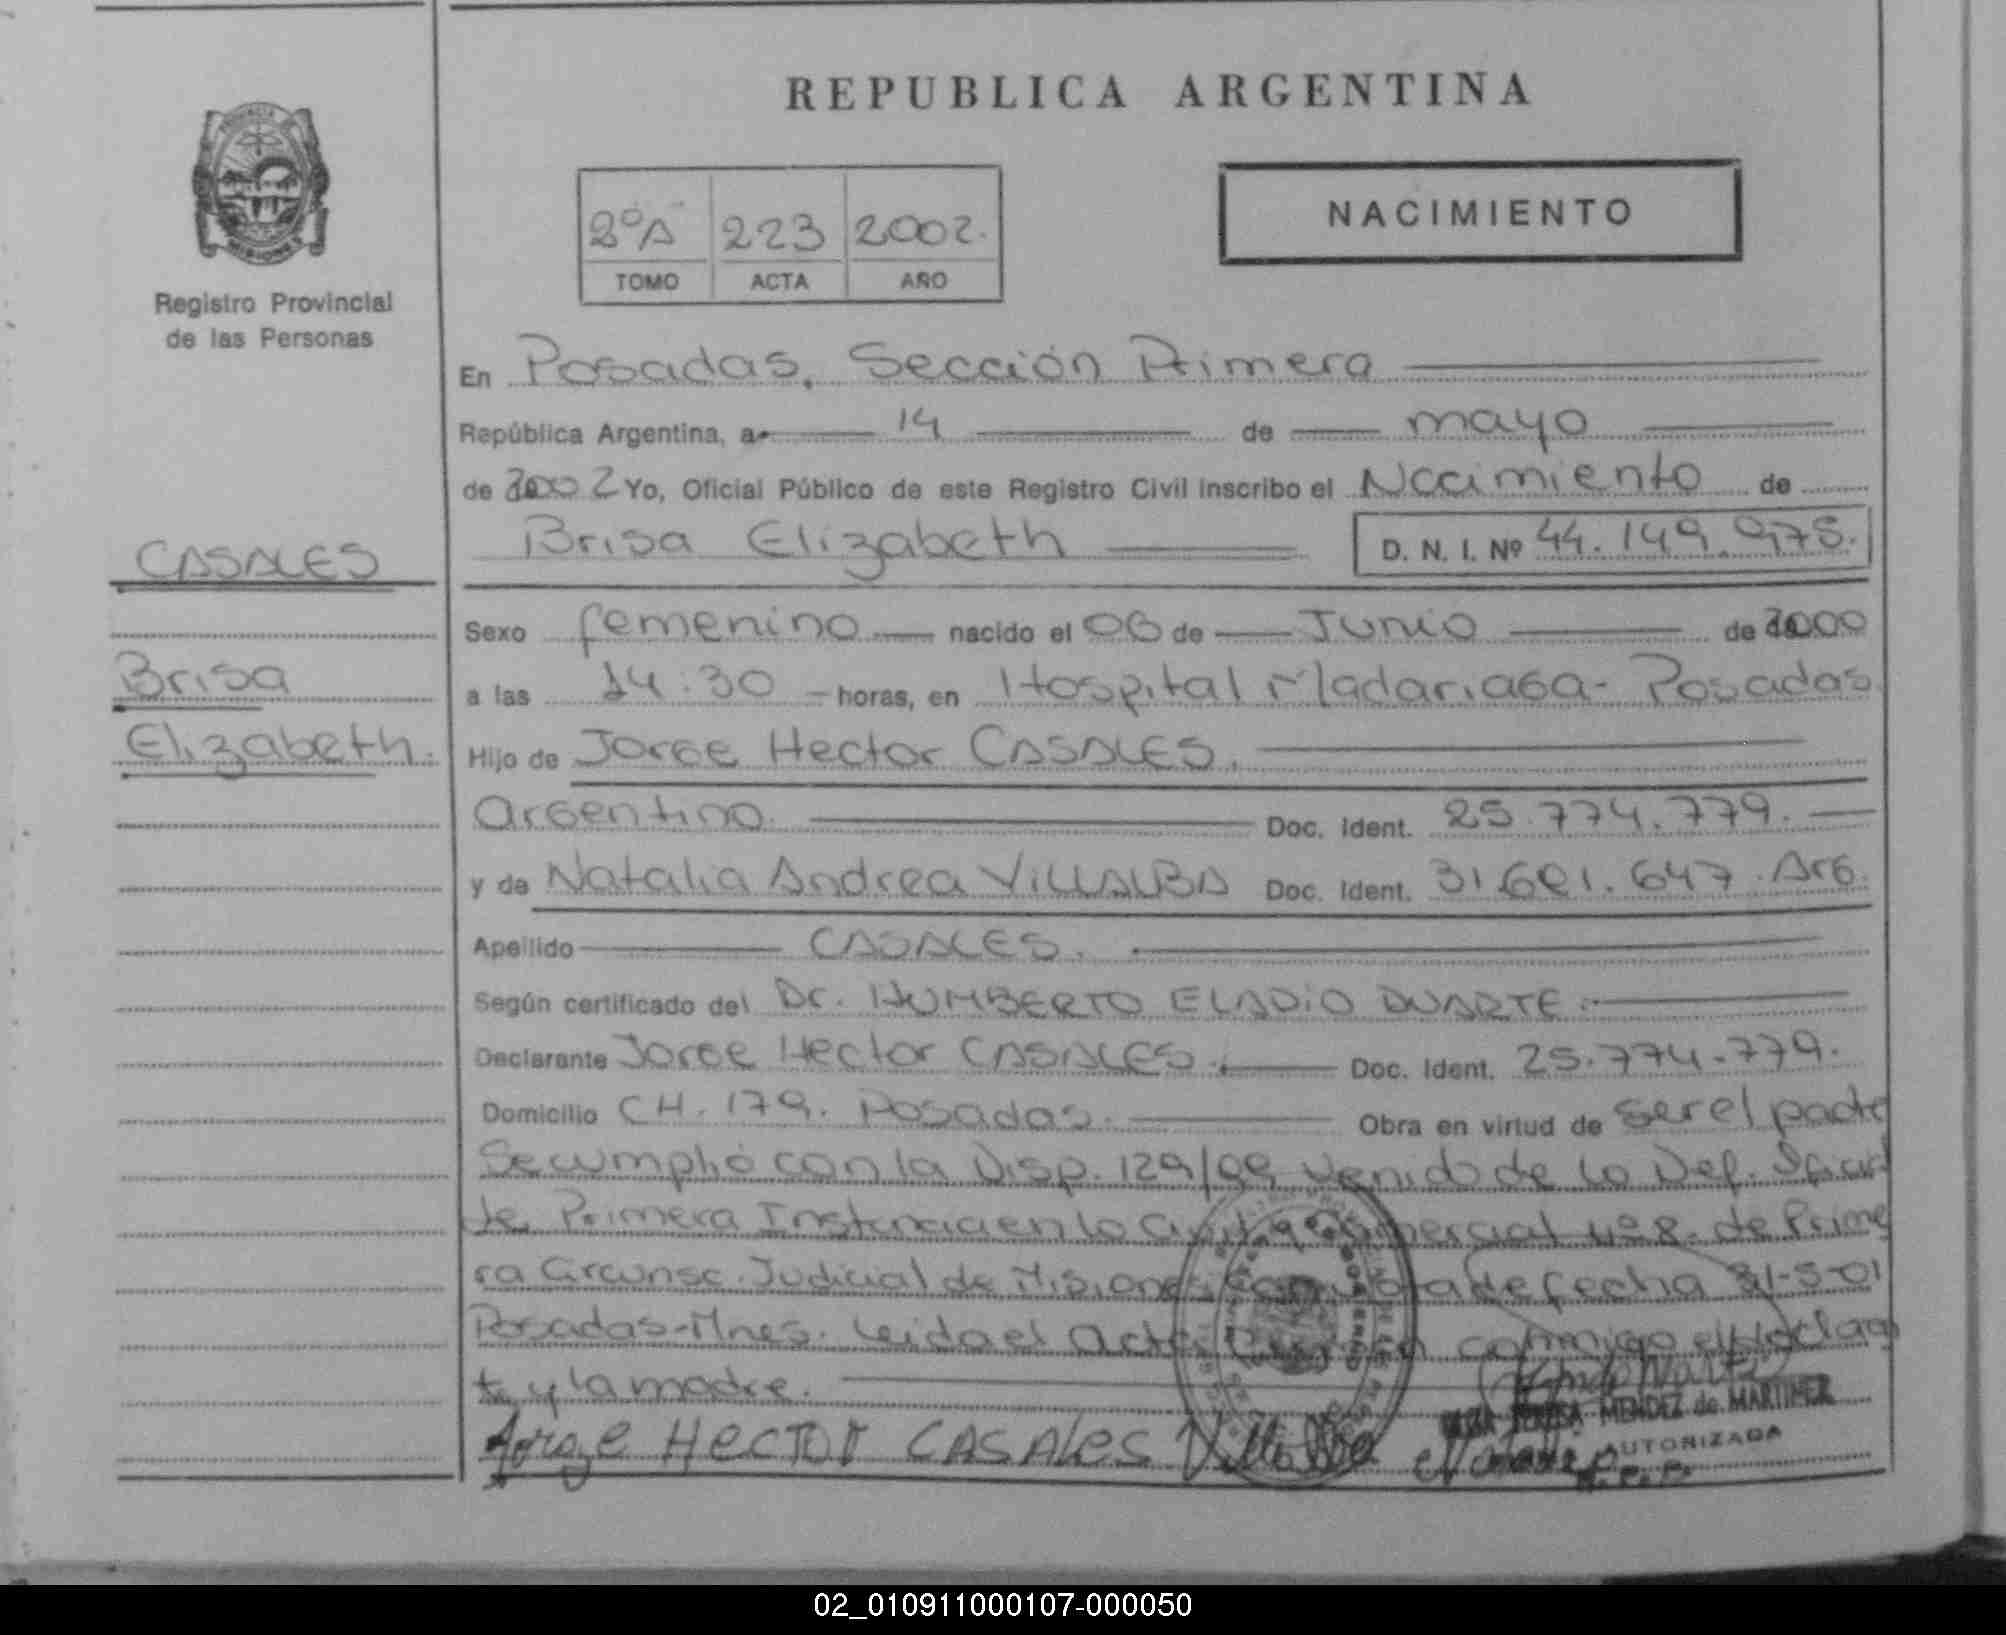 REPUBLICA ARGENTINA
NACIMIENTO
2ºA 223 2002.
TOMO ACTA AÑO
Registro Provincial
de las Personas
En Posadas, Sección Primera
República Argentina, a 14 de mayo
de 2002 Yo, Oficial Público de este Registro Civil inscribo el Nacimiento de
CASALES
Brisa Elizabeth D. N. I. Nº 44.149.975.
Sexo femenino nacido el 06 de Junio de 2000
Brisa
a las 14:30 horas, en Hospital Madariaga- Posadas
Elizabeth.
Hijo de Jorge Hector CASALES.
Argentino Doc. Ident. 25.774.779.
y de Natalia Andrea VILLALBA Doc. Ident. 31.691.647. Arg.
Apellido CASALES.
Según certificado del Dr. HUMBERTO ELADIO DUARTE.
Declarante Jorge Hector CASALES. Doc. Ident. 25.774.779.
Domicilio CH. 179. Posadas. Obra en virtud de ser el padre
Se cumplió con la Disp. 129/99 venido de la Def. Oficial
de Primera Instancia en lo Civil y Comercial nº 8. de Prime
ra Circunsc. Judicial de Misiones de fecha 31-5-01
Posadas-Mnes. Leida el Acta conmigo el declaran
te y la madre.
Jorge HECTOR CASALES Villalba Natalia
TERESA MENDEZ de MARTINEZ
AUTORIZADA
02_010911000107-000050